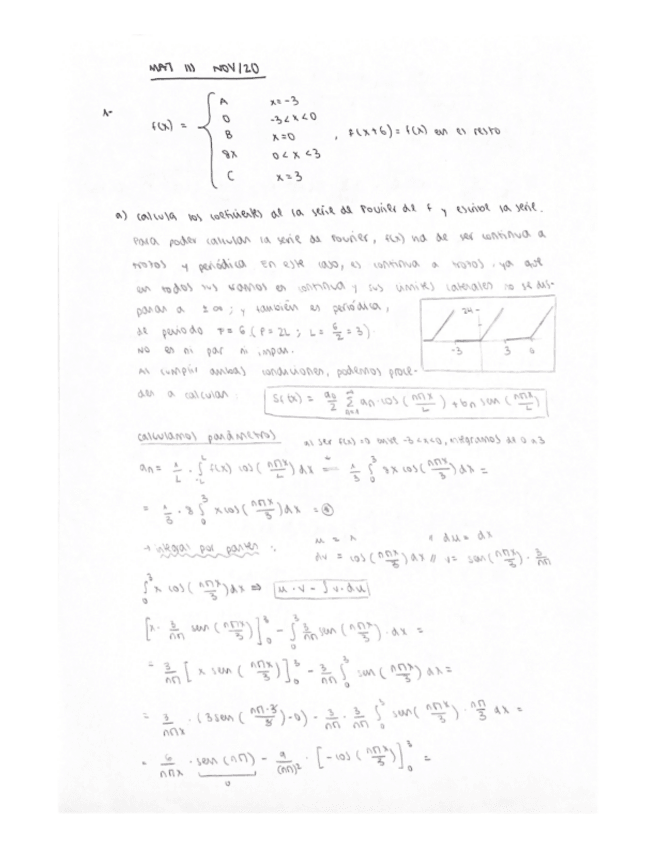 MAT III NOV/20
1-
f(x) = { A x=-3
0 -3<x<0
B x=0 , f(x+6)=f(x) en el resto
8x 0<x<3
C x=3
a) calcula los coeficientes de la serie de Fourier de f y escribe la serie.
Para poder calcular la serie de Fourier, f(x) ha de ser continua a
trozos y periódica En este caso, es continua a trozos, ya que
en todos sus tramos es continua y sus límites laterales no se dis-
paran a ±∞; y también es periódica,
de periodo P=6 (P=2L; L=6/2=3).
No es ni par ni impar.
24
-3 3 6
Al cumplir ambas condiciones, podemos proce-
der a calcular: Sf(x) = a0/2 ∑ n=1 ∞ an·cos(nπx/L)+bn sen(nπx/L)
calculamos parámetros al ser f(x)=0 entre -3<x<0, integramos de 0 a 3
an = 1/L · ∫_{-L}^{L} f(x) cos(nπx/L) dx = 1/3 ∫_0^3 8x cos(nπx/3) dx =
= 1/3 · 8 ∫_0^3 x cos(nπx/3) dx = ⊛
→ integral por partes: u = x // du = dx
dv = cos(nπx/3) dx // v = sen(nπx/3) · 3/nπ
∫_0^3 x cos(nπx/3) dx ⇒ u·v - ∫v·du
[x· 3/nπ sen(nπx/3)]_0^3 - ∫_0^3 3/nπ sen(nπx/3)·dx =
= 3/nπ [x sen(nπx/3)]_0^3 - 3/nπ ∫_0^3 sen(nπx/3) dx =
= 3/nπx · (3sen(nπ·3/3)-0) - 3/nπ · 3/nπ ∫_0^3 sen(nπx/3) · nπ/3 dx =
= 6/nπx · sen(nπ) - 9/(nπ)² · [-cos(nπx/3)]_0^3 =
0